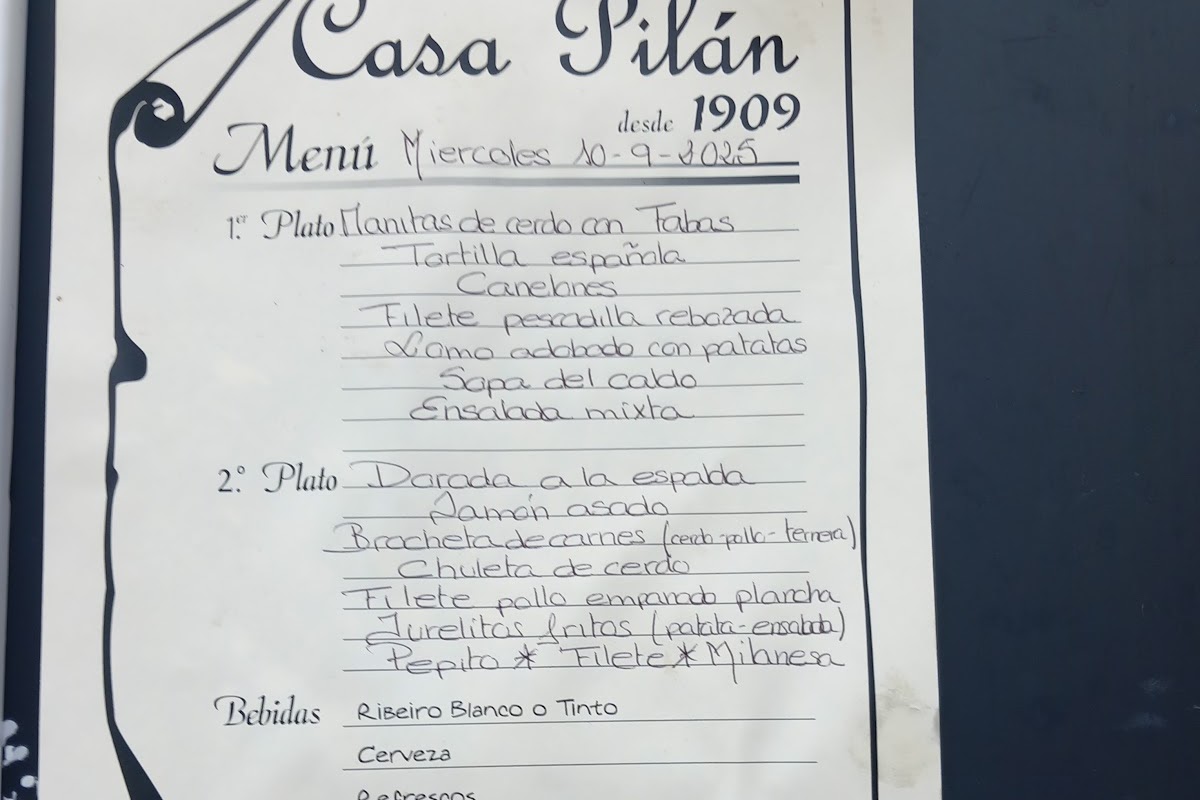 Casa Pilán
desde 1909
Menú Miercoles 10-9-2025
1.er Plato Manitas de cerdo con Fabas
Tortilla española
Canelones
Filete pescadilla rebozada
Lomo adobado con patatas
Sopa del caldo
Ensalada mixta
2.º Plato Dorada a la espalda
Jamón asado
Brocheta de carnes (cerdo-pollo-ternera)
Chuleta de cerdo
Filete pollo empanado plancha
Jurelitos fritos (patata-ensalada)
Pepito * Filete * Milanesa
Bebidas Ribeiro Blanco o Tinto
Cerveza
Refrescos